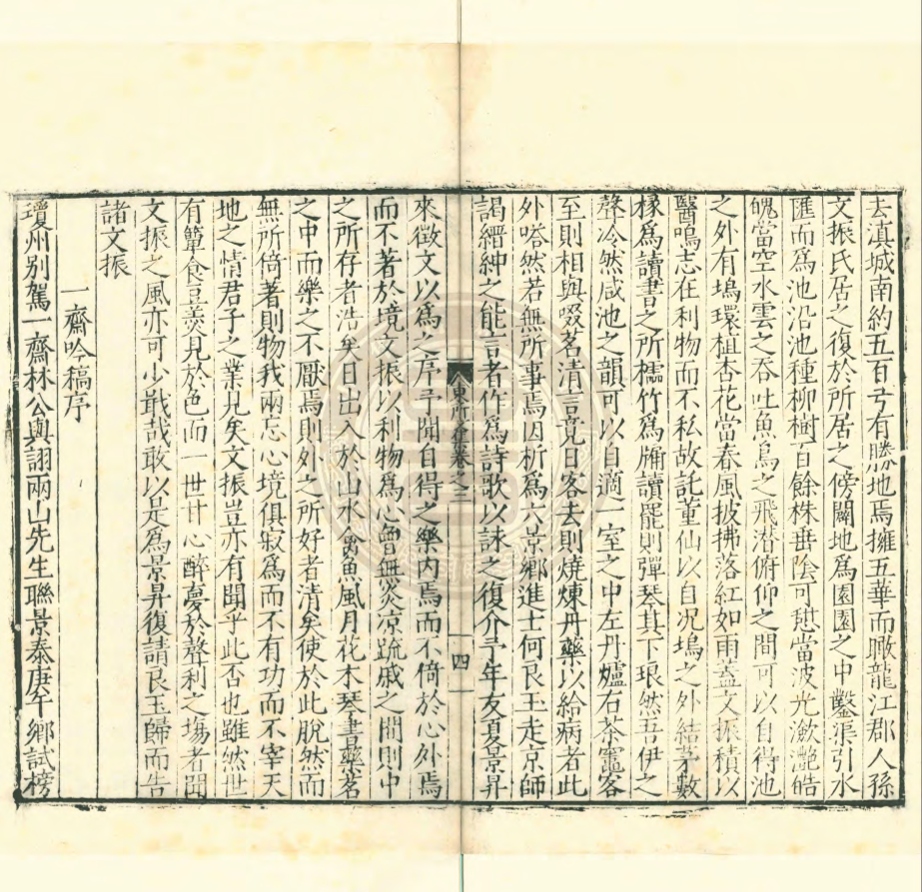 去滇城南約五百弓有勝地焉擁五華而瞰龍江郡人孫
文振氏居之復於所居之傍闢地為園園之中鑿渠引水
匯而為池沿池種柳樹百餘株垂陰可憇當波光瀲灧皓
魄當空水雲之吞吐魚鳥之飛潜俯仰之間可以自得池
之外有塢環植杏花當春風披拂落紅如雨蓋文振積以
醫鳴志在利物而不私故託董仙以自况塢之外結茅數
椽為讀書之所檽竹為牖讀罷則彈琴其下琅然吾伊之
聲泠然咸池之韻可以自適一室之中左丹爐右茶竈客
至則相與啜茗清言竟日客去則燒煉丹藥以給病者此
外嗒然若無所事焉因析為六景鄉進士何良玉走京師
謁縉紳之能言者作為詩歌以詠之復介予年友夏景昇
東所先生文集卷之二
四
來徵文以為之序予聞自得之樂内焉而不倚於心外焉
而不著於境文振以利物為心曾無炎凉䟽戚之間則中
之所存者浩矣日出入於山水禽魚風月花木琴書藥茗
之中而樂之不厭焉則外之所好者清矣使於此脱然而
無所倚著則物我兩忘心境俱寂為而不有功而不宰天
地之情君子之業見矣文振豈亦有聞乎此否也雖然世
有簞食豆羮見於色而一世甘心醉夢於聲利之塲者聞
文振之風亦可少戢哉敢以是為景昇復請良玉歸而告
諸文振
一齋吟稿序
瓊州别駕一齋林公與詡兩山先生聯景泰庚午鄉試榜